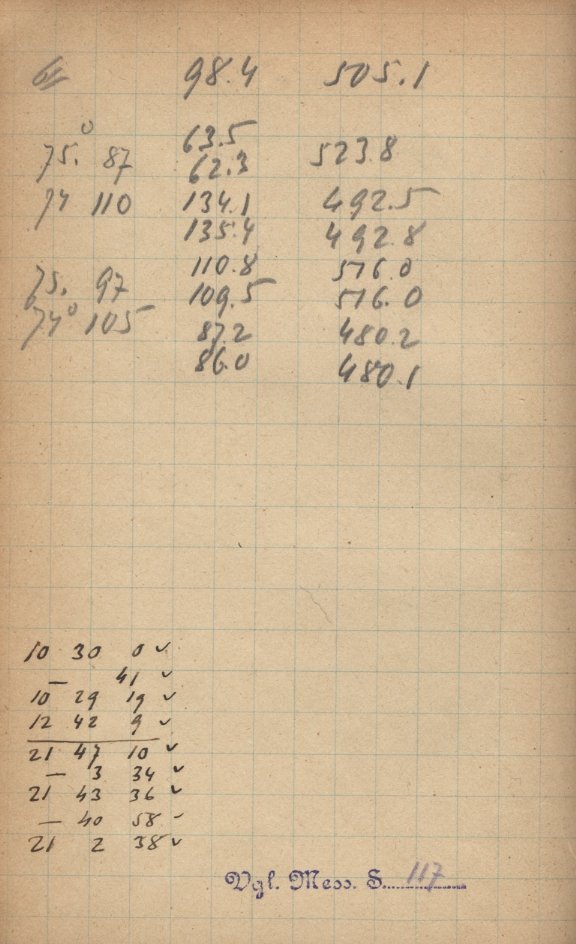 98.4 505.1
63.5
75.° 87 62.3 523.8
74 110 134.1 492.5
135.4 492.8
110.8 516.0
75. 97 109.5 516.0
74° 105 87.2 480.2
86.0 480.1
10 30 0 ✓
— 41 ✓
10 29 19 ✓
12 42 9 ✓
21 47 10 ✓
— 3 34 ✓
21 43 36 ✓
— 40 58 ✓
21 2 38 ✓
Vgl. Mess. S. 117